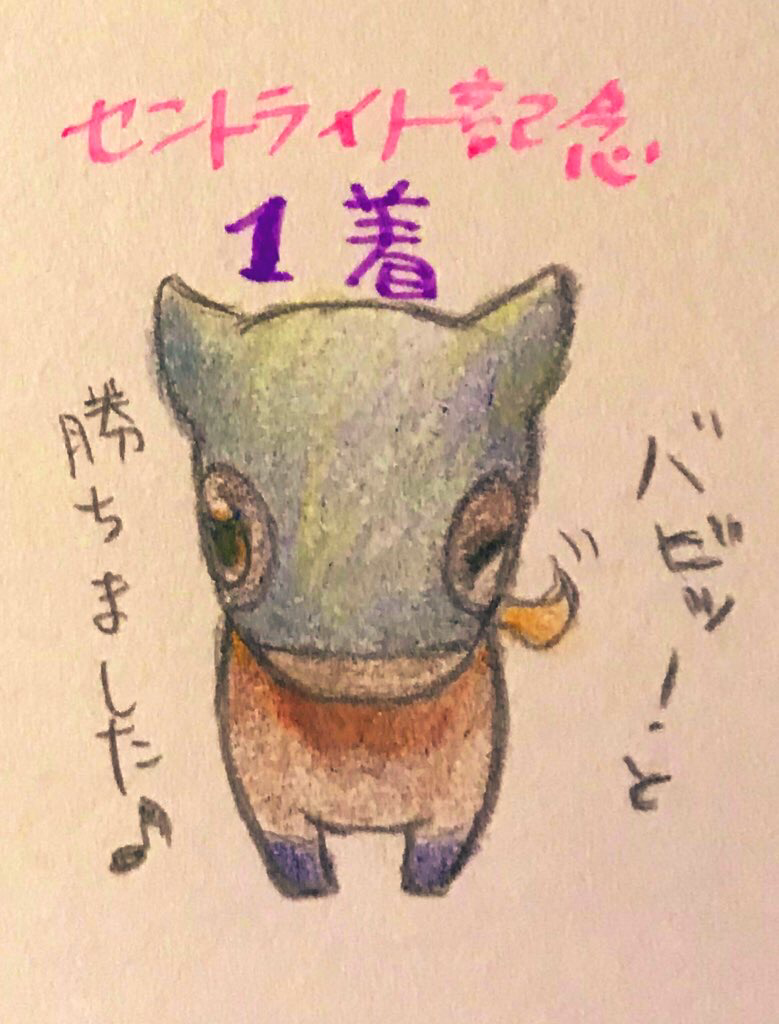 セントライト記念
1着
バビッ!と
勝ちました♪